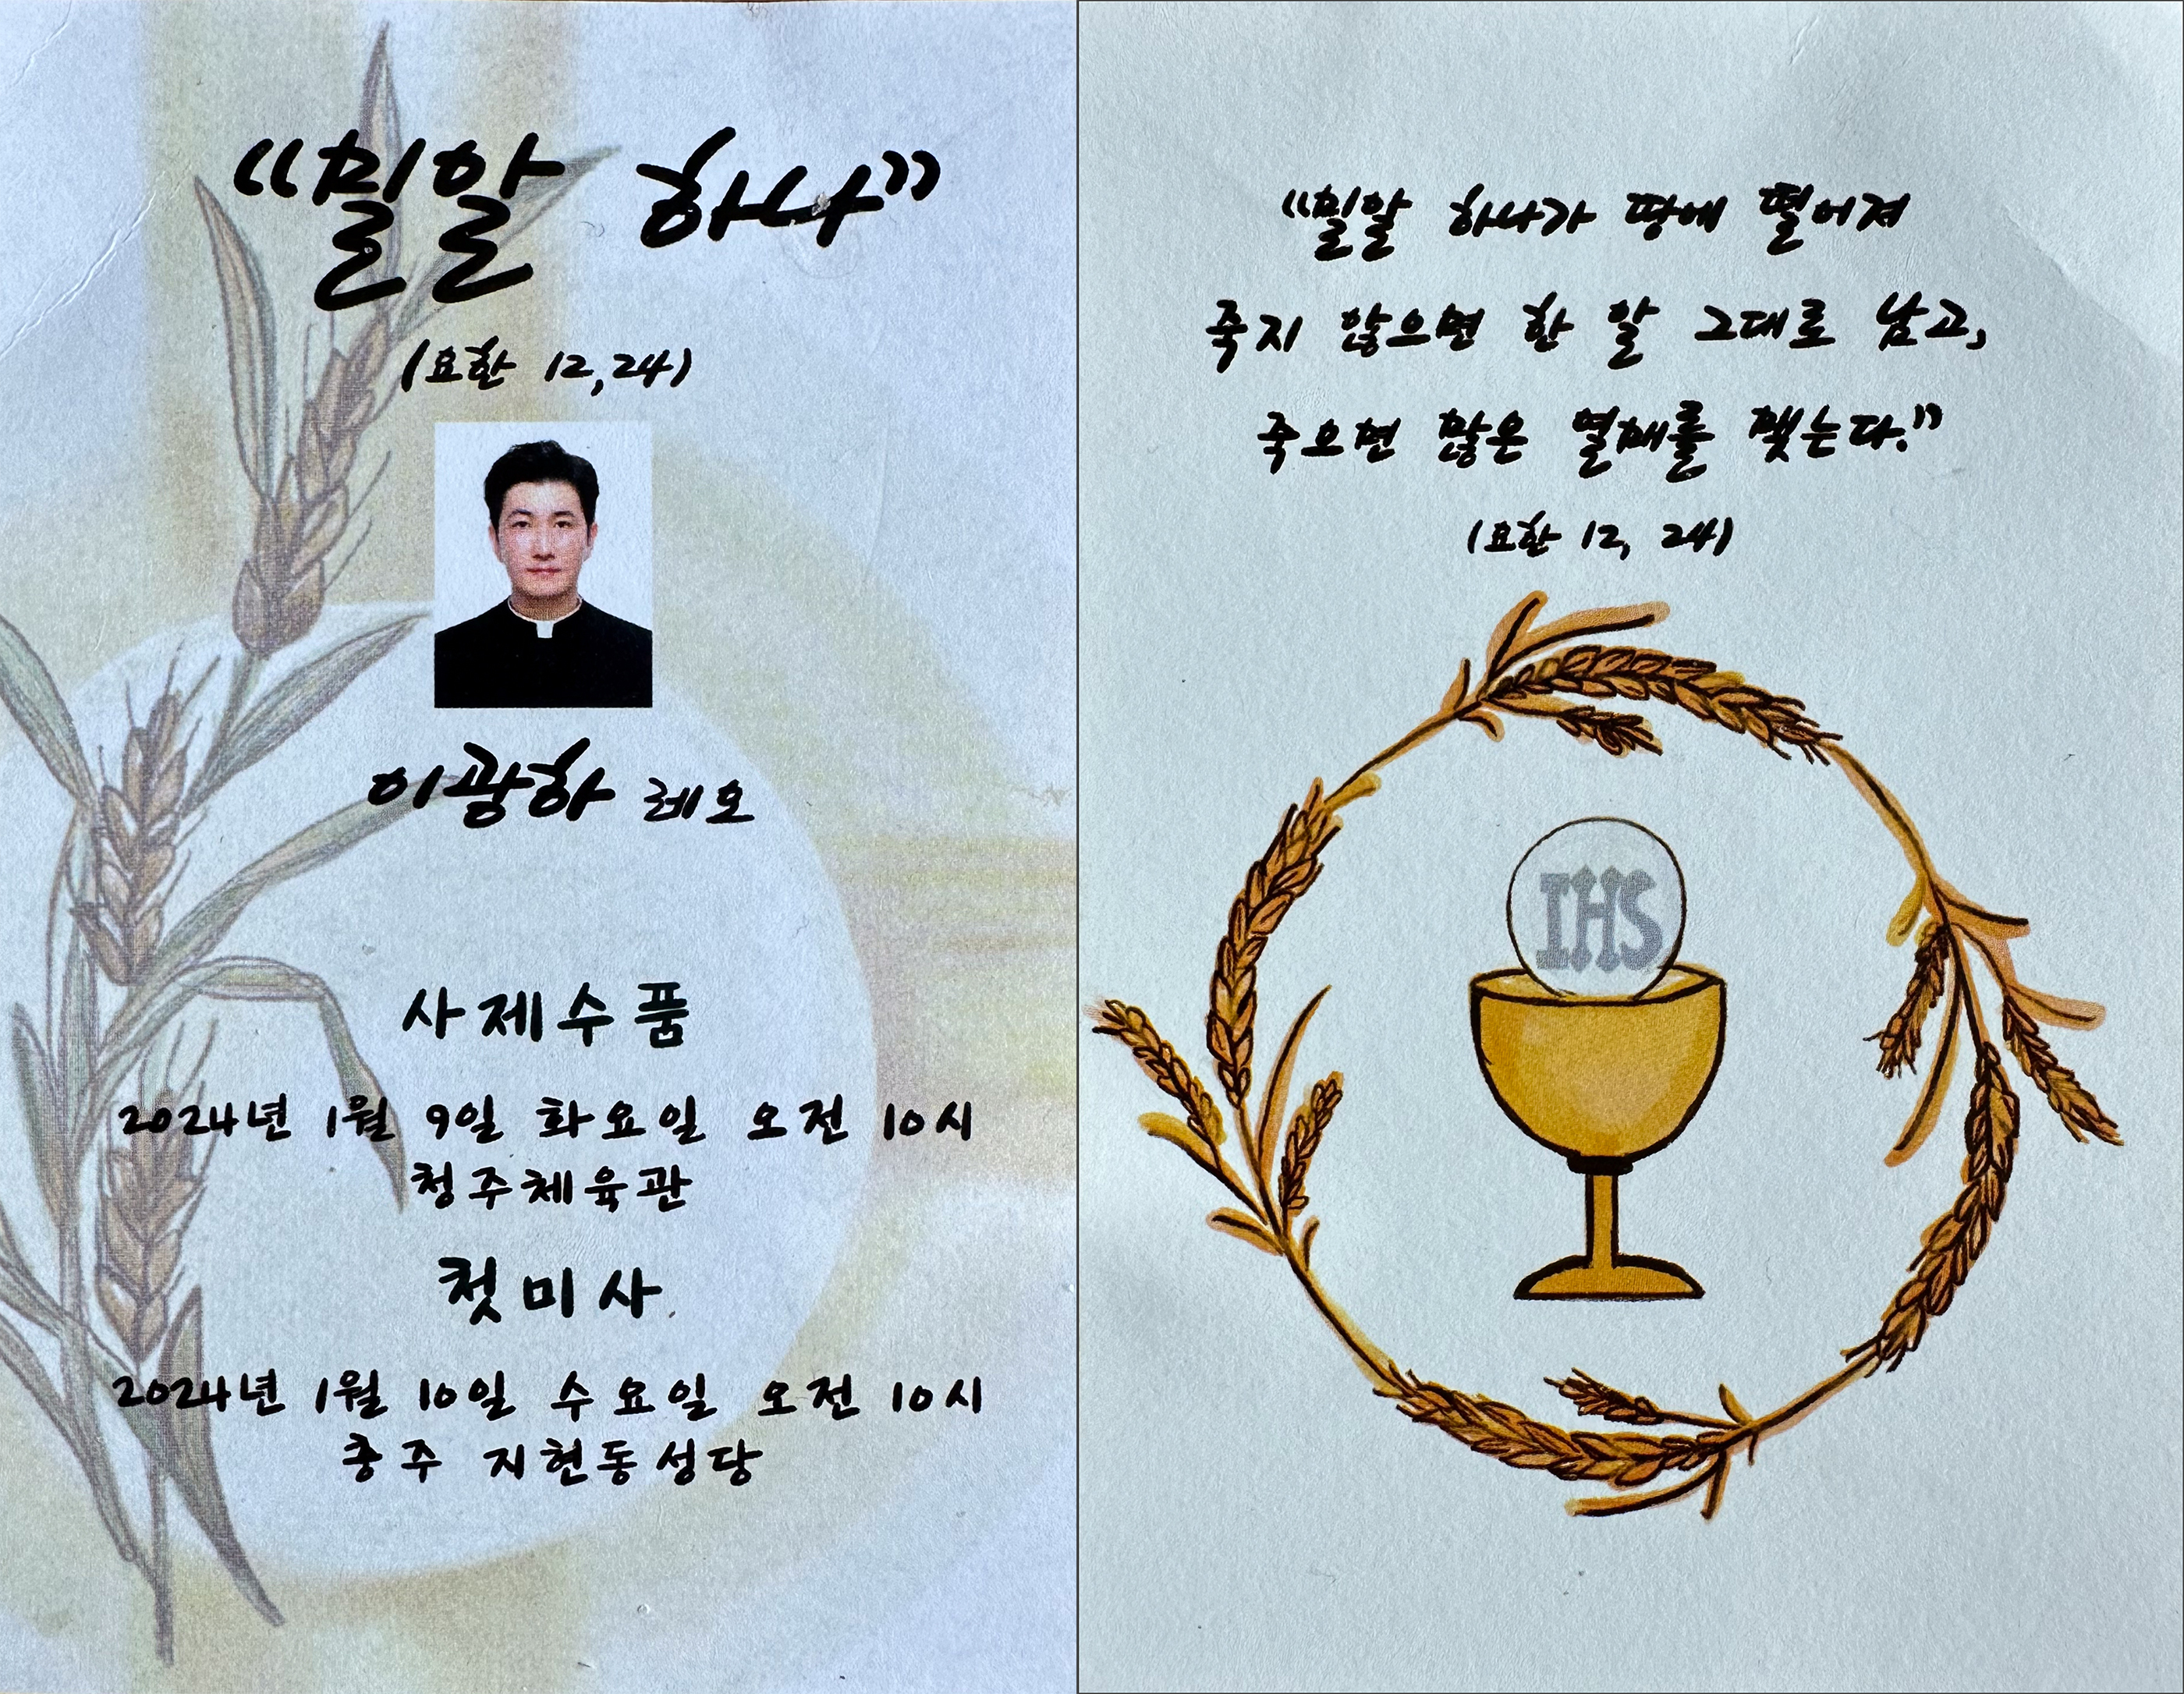 “밀알 하나”
(요한 12,24)
이광하 레오
사제수품
2024년 1월 9일 화요일 오전 10시
청주체육관
첫미사
2024년 1월 10일 수요일 오전 10시
충주 지현동성당
“밀알 하나가 땅에 떨어져
죽지 않으면 한 알 그대로 남고,
죽으면 많은 열매를 맺는다.”
(요한 12, 24)
IHS